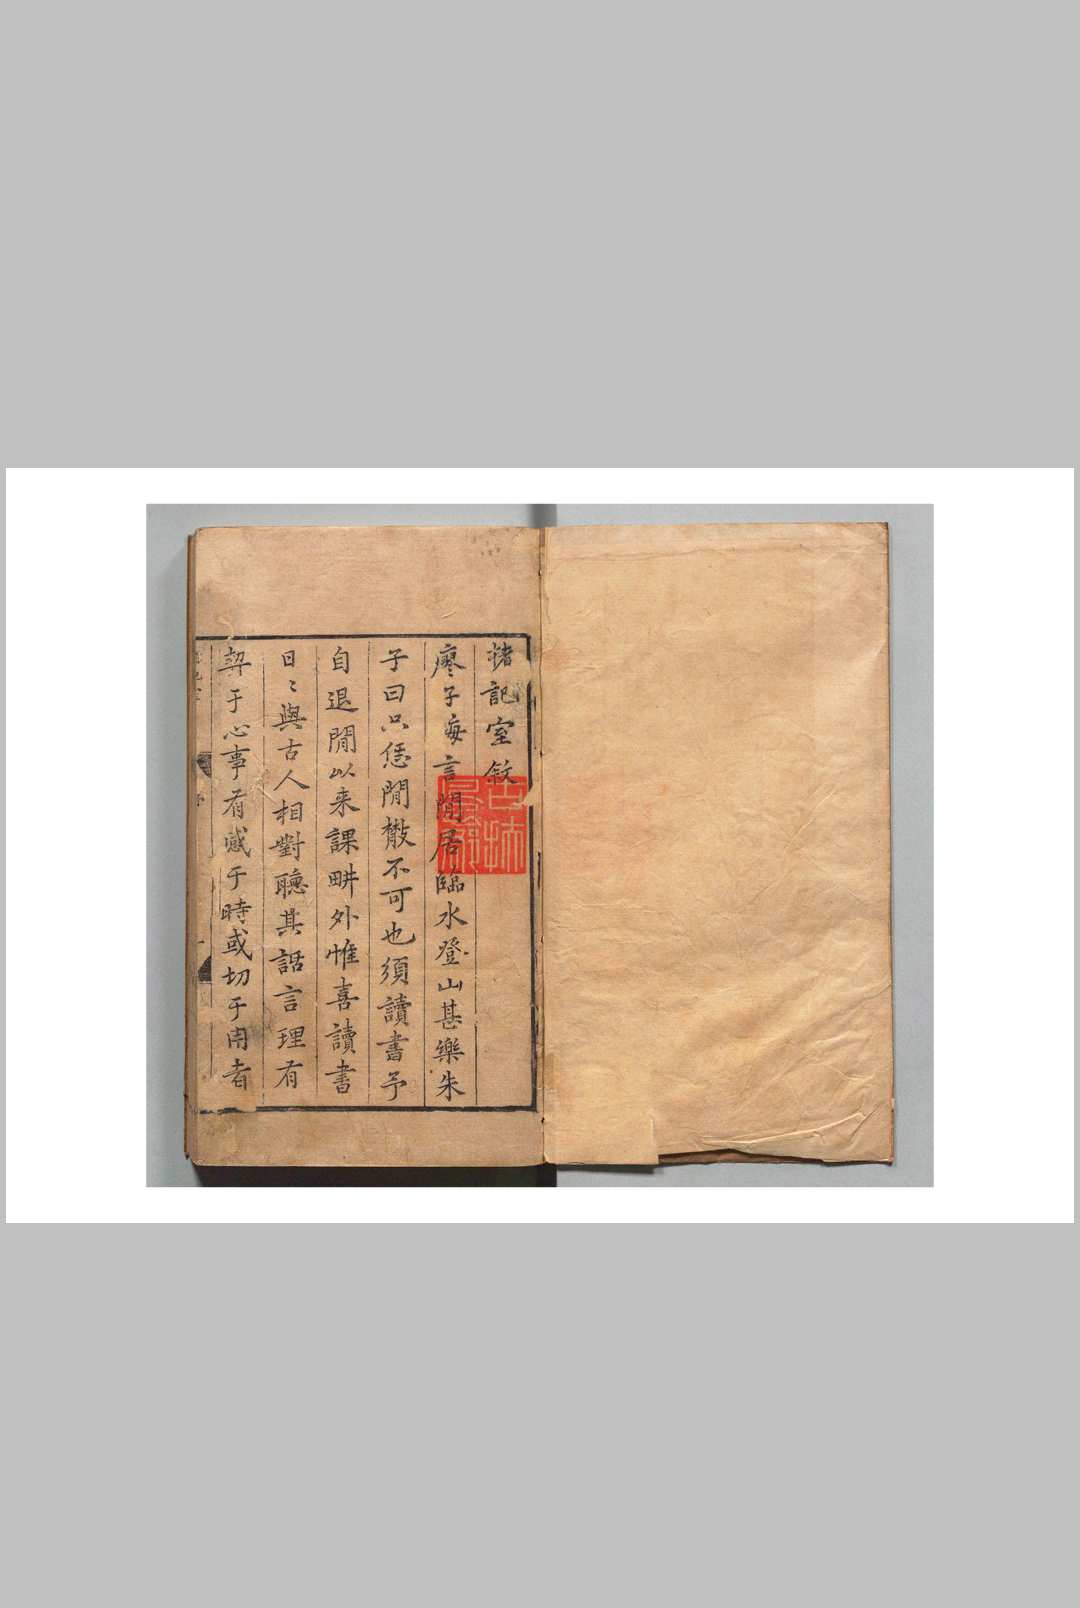 楮記室敘
廖子每言閒居臨水登山甚樂朱
子曰只恁閒散不可也須讀書予
自退閒以来課畊外惟喜讀書
日〻與古人相對聽其話言理有
契于心事有感于時或切于用者